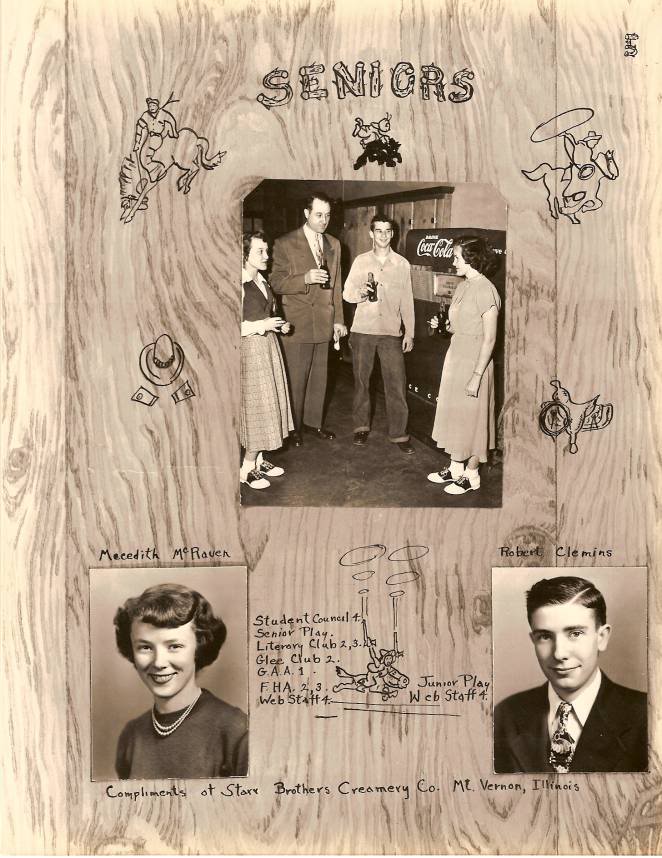 SENIORS
DRINK
Coca-Cola
Meredith McRaven
Robert Clemins
Student Council 4.
Senior Play.
Literary Club 2,3.
Glee Club 2.
G.A.A. 1.
F.H.A. 2,3.
Web Staff 4.
Junior Play
Web Staff 4.
Compliments of Starr Brothers Creamery Co. Mt. Vernon, Illinois